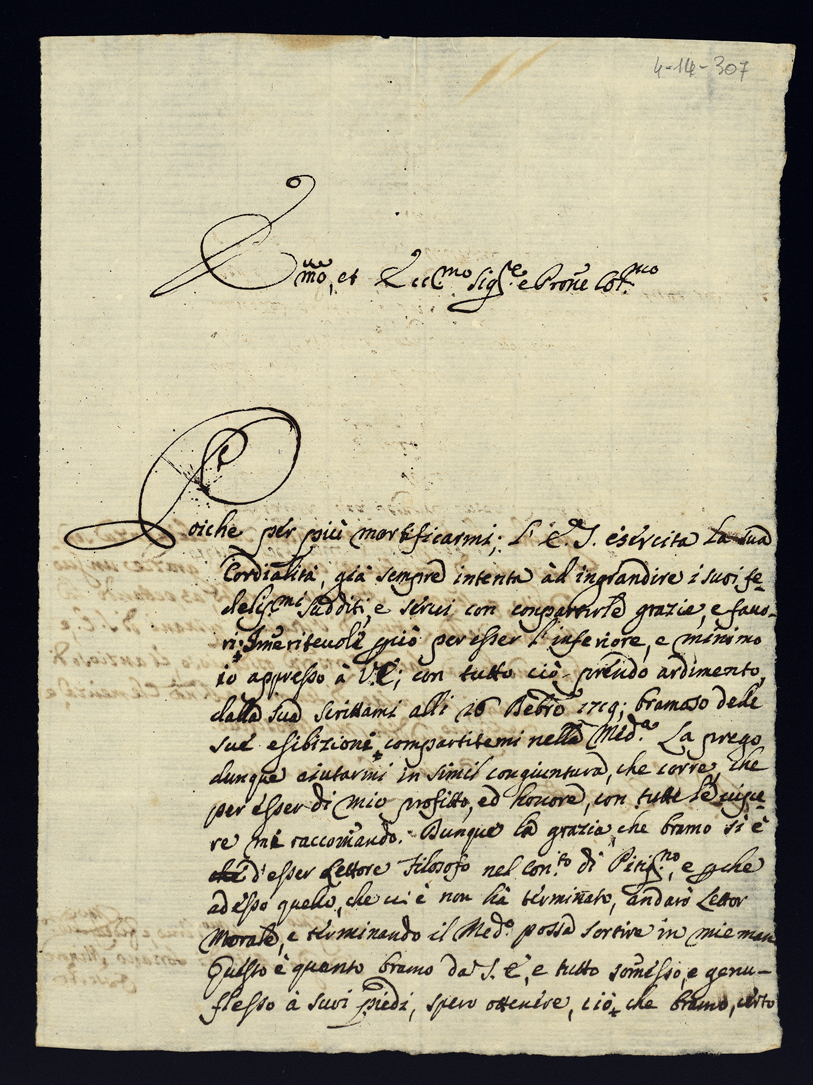 4-14-307
Emo, et Eccmo Sigre e Prone Colmo
Poiche per più mortificarmi; l' E. S. esercita la sua
Cordialità, già sempre intenta ad ingrandire i suoi fe-
delissmi sudditi, e servi con compartirle grazie, e favo-
ri. Imeritevole perciò per esser l'inferiore, e minimo
io appresso à V.E.; con tutto ciò prendo ardimento,
dalla sua scrittami alli 16 Febro 1719; bramoso delle
sue esibizioni compartitemi nella Meda. La prego
dunque aiutarmi in simil congiuntura, che corre, che
per esser di mio profitto, ed honore, con tutte le visce-
re me raccomando. Dunque la grazia che bramo si è
che d'esser Lettore Filosofo nel conto di Pitigno, e perche
adesso quello, che ci è non hà terminato, andarò Lettor
Morale, e terminando il Medo possa sortire in mie man
Questo è quanto bramo da S. E., e tutto somesso, e genu-
flesso à suoi piedi, spero ottenere, ciò che bramo, certo